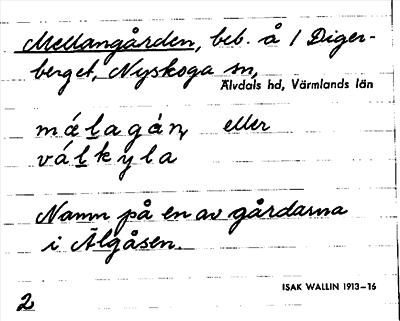 Mellangården, beb. å 1 Diger-
berget, Nyskoga sn,
Älvdals hd, Värmlands län
mǽḷagȧ́n, eller
vȧ́ḷkyla
Namn på en av gårdarna
i Älgåsen.
ISAK WALLIN 1913–16
2